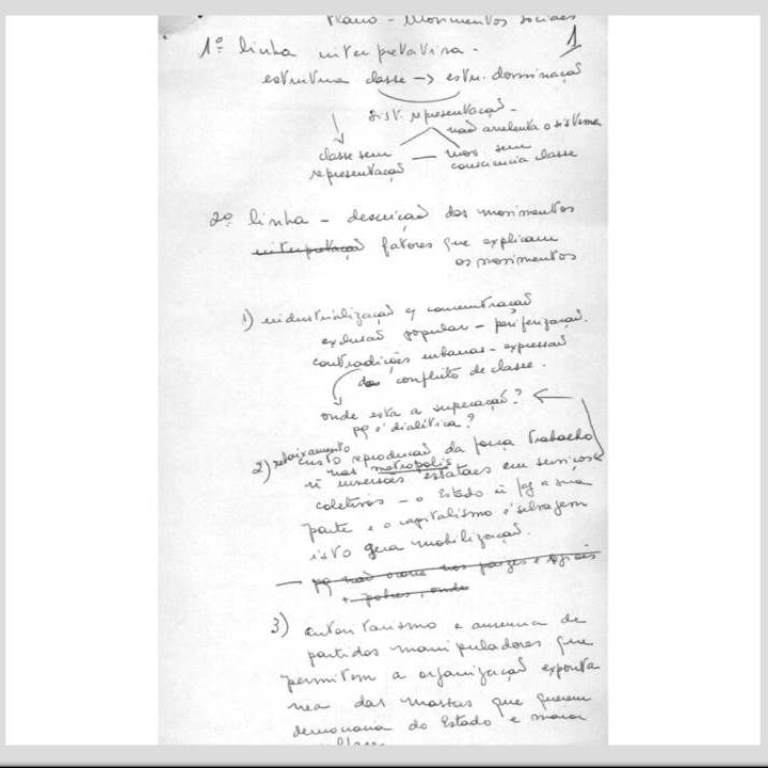 Plano - Movimentos sociais
1
1º linha interpretativa.
estrutura classe → estru. dominaçaõ
sist. representaçaõ -
naõ arrebenta o sistema
classe sem representaçaõ — mov sem consciencia classe
2º linha - descriçaõ dos movimentos
interpretaçaõ fatores que explicam
os movimentos
1) industrializaçaõ e concentraçaõ
exclusaõ popular - periferizaçaõ.
contradições urbanas - expressaõ
do conflito de classe.
onde esta a superaçaõ?
pq é dialética?
rebaixamento
2) custo reproduçaõ da força trabalho
nas metropolis
ñ inversões estatais em serviços
coletivos - o Estado ñ faz a sua
parte e o capitalismo é selvagem
isto gera mobilizaçaõ.
— pq naõ ocorre nos paizes e
+ pobres, onde
3) autoritarismo e ausencia de
partidos manipuladores que
permitem a organizaçaõ exponta
nea das massas que querem
democracia do Estado e maior